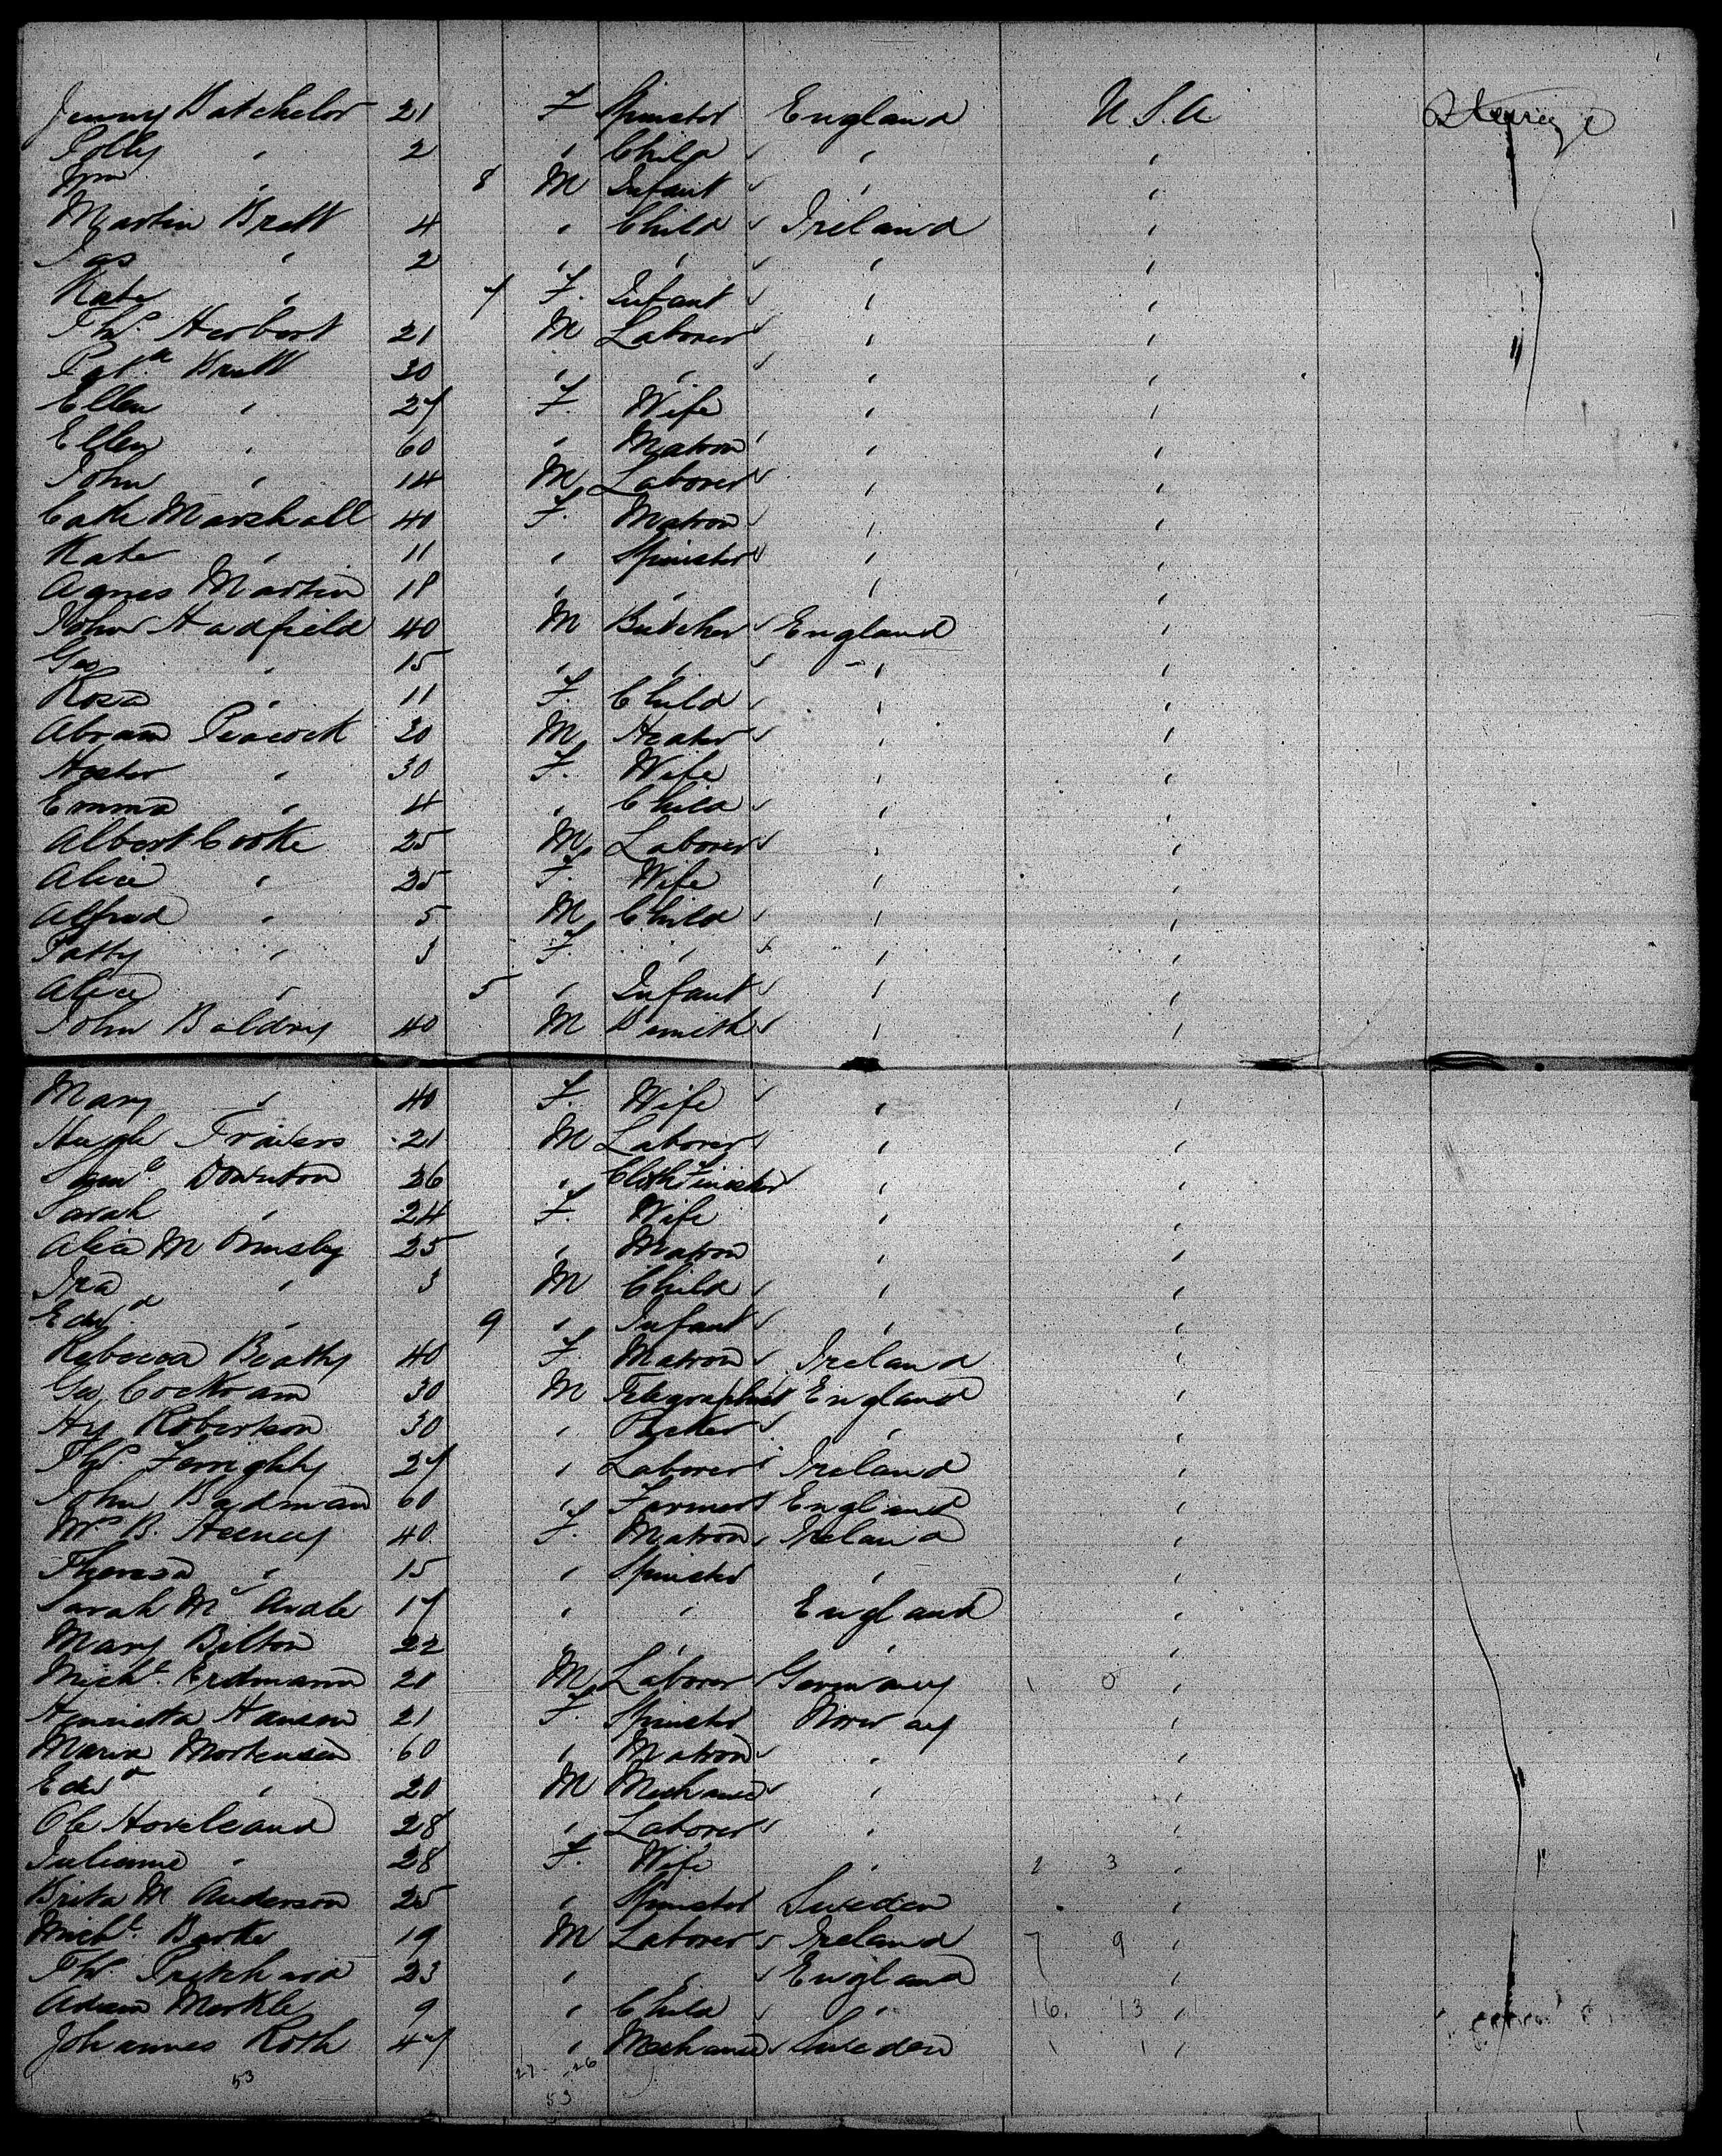 Jenny Batchelor 21 F Spinster England U.S.A Steerage
Polly " 2 " Child " "
Wm " 8 M Infant " "
Martin Brett 4 " Child Ireland "
Jas " 2 " " " "
Kate " 7 F. Infant " "
Thos Herbert 21 M Laborer " "
Patk Brett 30 " " " "
Ellen " 27 F. Wife " "
Ellen " 60 " Matron " "
John " 14 M Laborer " "
Cath Marshall 40 F. Matron " "
Kate " 11 " Spinster " "
Agnes Martin 18 " " " "
John Hadfield 40 M Butcher England "
Geo " 15 " " " "
Rosa " 11 F. Child " "
Abram Peacock 30 M Heater " "
Hester " 30 F. Wife " "
Emma " 4 " Child " "
Albert Cooke 25 M Laborer " "
Alice " 25 F. Wife " "
Alfred " 5 M Child " "
Patty " 3 F. " " "
Alice " 5 " Infant " "
John Baldry 40 M Bsmith " "
Mary " 40 F. Wife " "
Hugh Travers 21 M Laborer " "
Saml Downton 26 " Cloth Finisher " "
Sarah " 24 F. Wife " "
Alice M Ormsby 25 " Matron " "
Ira " 3 M Child " "
Edwd " 9 " Infant " "
Rebecca Beatty 40 F. Matron Ireland "
Geo Cockram 30 M Telegraphist England "
Hy Robertson 30 " Packer " "
Thos Ferrighty 27 " Laborer Ireland "
John Badman 60 " Farmer England "
Mrs B. Heeney 40 F. Matron Ireland "
Theresa " 15 " Spinster " "
Sarah Mc Ardle 17 " " England "
Mary Bilton 22 " " " "
Michl Erdmann 20 M Laborer Germany 1 0 "
Henrietta Hansen 21 F. Spinster Norway "
Maria Mortensen 60 " Matron " "
Edwd " 20 M Mechanic " "
Ole Hoveland 28 " Laborer " "
Julianne " 28 F. Wife " 2 3 "
Brita M Anderson 25 " Spinster Sweden "
Michl Burke 19 M Laborer Ireland 7 9 "
Thos Pritchard 23 " " England "
Adam Merkle 9 " Child " 16. 13 "
Johannes Roth 47 " Mechanic Sweden 1 1 "
53 27 26
53